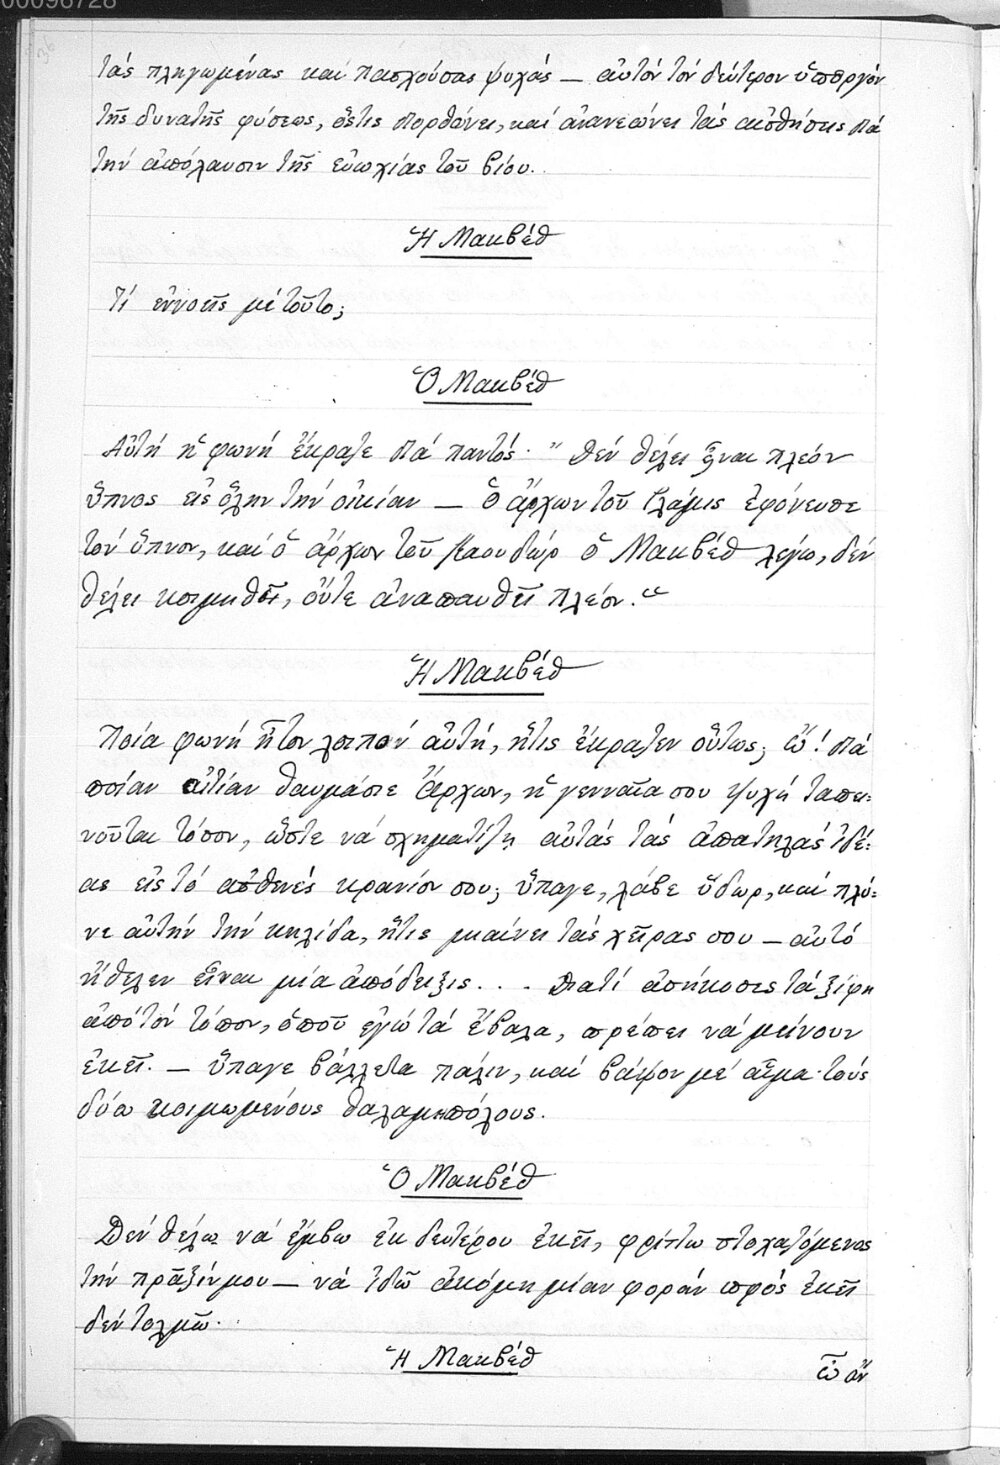 00096728
36
τὰς πληγωμένας καὶ πασχούσας ψυχάς — αὐτὸν τὸν δεύτερον ὑπουργὸν
τῆς δυνατῆς φύσεως, ὅστις διορθώνει, καὶ ἀνανεώνει τὰς αἰσθήσεις διὰ
τὴν ἀπόλαυσιν τῆς εὐωχίας τοῦ βίου.
Ἡ Μακβέθ
Τί ἐννοεῖς μὲ τοῦτο;
Ὁ Μακβέθ
Αὐτὴ ἡ φωνὴ ἔκραζε διὰ παντός· " δὲν θέλει εἶναι πλέον
ὕπνος εἰς ὅλην τὴν οἰκίαν — ὁ ἄρχων τοῦ Γλάμις ἐφόνευσε
τὸν ὕπνον, καὶ ὁ ἄρχων τοῦ Καουδὼρ ὁ Μακβέθ λέγω, δὲν
θέλει κοιμηθεῖ, οὔτε ἀναπαυθεῖ πλέον. "
Ἡ Μακβέθ
Ποία φωνὴ ἦτον λοιπὸν αὐτή, ἥτις ἔκραζεν οὕτως; ὤ! διὰ
ποίαν αἰτίαν θαυμάσιε Ἄρχων, ἡ γενναῖα σου ψυχὴ ταπει-
νοῦται τόσον, ὥστε νὰ σχηματίζῃ αὐτὰς τὰς ἀπατηλὰς ἰδέ-
ας εἰς τὸ ἀσθενὲς κρανίον σου; ὕπαγε, λάβε ὕδωρ, καὶ πλύ-
νε αὐτὴν τὴν κηλίδα, ἥτις μιαίνει τὰς χεῖρας σου — αὐτὸ
ἤθελεν εἶναι μία ἀπόδειξις. . . Διατί ἀσήκωσες τὰ ξίφη
ἀπὸ τὸν τόπον, ὁποῦ ἐγὼ τὰ ἔβαλα, πρέπει νὰ μείνουν
ἐκεῖ. — ὕπαγε βάλλε τα πάλιν, καὶ βάψον μὲ αἷμα τοὺς
δύω κοιμωμένους θαλαμηπόλους.
Ὁ Μακβέθ
Δὲν θέλω νὰ ἔμβω ἐκ δευτέρου ἐκεῖ, φρίττω στοχαζόμενος
τὴν πρᾶξίν μου — νὰ ἰδῶ ἀκόμη μίαν φορὰν πρὸς ἐκεῖ
δὲν τολμῶ.
Ἡ Μακβέθ
ὦ ἂν